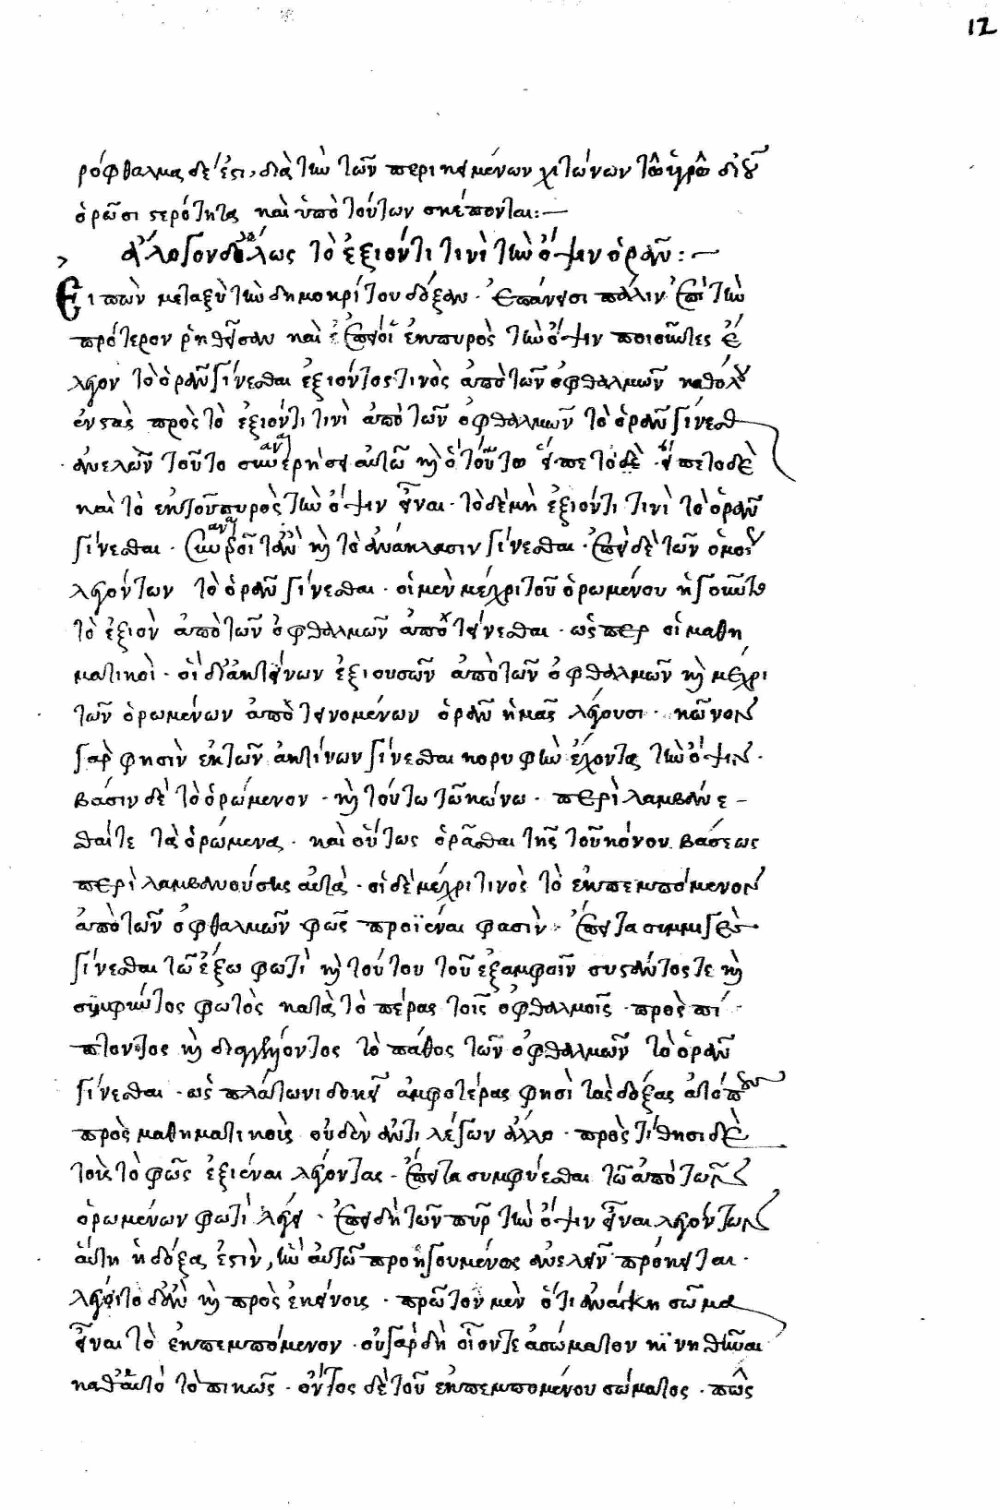 12
ρόφθαλμα δέ ἐστι, διὰ τὴν τῶν περικειμένων χιτώνων τῷ ὑγρῷ δι' οὗ
ὁρῶσι στερότητα καὶ ὑπὸ τούτων σκέπονται:—
ἄλογον δὲ ὅλως τὸ ἐξιόντι τινὶ τὴν ὄψιν ὁρᾶν:—
Εἰπὼν μεταξὺ τὴν δημοκρίτου δόξαν· ἐπάνεισι πάλιν ἐπὶ τὴν
πρότερον ῥηθεῖσαν καὶ ἐπεὶ οἱ ἐκ πυρὸς τὴν ὄψιν ποιοῦντες ἔ
λεγον τὸ ὁρᾶν γίνεσθαι ἐξιόντος τινὸς ἀπὸ τῶν ὀφθαλμῶν καθόλου
ἐνστὰς πρὸς τὸ ἐξιόντι τινὶ ἀπὸ τῶν ὀφθαλμῶν τὸ ὁρᾶν γίνεσθ
ἀνελὼν τοῦτο συνανῄρηκεν αὐτῷ καὶ ὁ τούτῳ εἵπετο δὲ· εἵπετο δὲ
καὶ τὸ ἐκ τοῦ πυρὸς τὴν ὄψιν εἶναι· τὸ δὲ μὴ ἐξιόντι τινὶ τὸ ὁρᾶν
γίνεσθαι· συναναιροῖτ' ἂν καὶ τὸ ἀνάκλασιν γίνεσθαι· ἐπεὶ δὲ τῶν ὁμοῦ
λεγόντων τὸ ὁρᾶν γίνεσθαι· οἱ μὲν μέχρι τοῦ ὁρωμένου ἡγοῦντο
τὸ ἐξιὸν ἀπὸ τῶν ὀφθαλμῶν ἀποτείνεσθαι· ὥσπερ οἱ μαθη
ματικοὶ· οἳ δι' ἀκτίνων ἐξιουσῶν ἀπὸ τῶν ὀφθαλμῶν καὶ μέχρι
τῶν ὁρωμένων ἀποτεινομένων ὁρᾶν ἡμᾶς λέγουσι· κῶνον
γάρ φησιν ἐκ τῶν ἀκτίνων γίνεσθαι κορυφὴν ἔχοντα τὴν ὄψιν·
βάσιν δὲ τὸ ὁρώμενον· καὶ τούτῳ τῷ κώνῳ· περιλαμβάνε-
σθαί τε τὰ ὁρώμενα· καὶ οὕτως ὁρᾶσθαι τῆς τοῦ κόνου βάσεως
περιλαμβανούσης αὐτὰ· οἱ δὲ μέχρι τινὸς τὸ ἐκπεμπόμενον
ἀπὸ τῶν ὀφθαλμῶν φῶς προϊέναι φασὶν· ἔπειτα συμμιγὲς
γίνεσθαι τῷ ἔξω φωτὶ καὶ τούτου τοῦ ἐξ ἀμφοῖν συστάντος τε καὶ
συμφύντος φωτὸς κατὰ τὸ πέρας τοῖς ὀφθαλμοῖς· προσπί
πτοντος καὶ διαγγέλοντος τὸ πάθος τῶν ὀφθαλμῶν τὸ ὁρᾶν
γίνεσθαι· ὡς πλάτωνι δοκεῖ ἀμφοτέρας φησὶ τὰς δόξας ἀτόπου
πρὸς μαθηματικοὺς οὐδὲν ἀντιλέγων ἄλλο· προστίθησι δὲ
τοὺς τὸ φῶς ἐξιέναι λέγοντας· ἔπειτα συμφύεσθαι τῷ ἀπὸ τῶν
ὁρωμένων φωτὶ λέγει· ἐπειδὴ τῶν πῦρ τὴν ὄψιν εἶναι λεγόντων
αὕτη ἡ δόξα ἐστὶν, ἣν αὐτῷ προηγουμένως ἀνελεῖν πρόκειται·
λέγοιτο δ' ἂν καὶ πρὸς ἐκείνους· πρῶτον μὲν ὅτι ἀνάγκη σῶμα
εἶναι τὸ ἐκπεμπόμενον· οὐ γὰρ δὴ οἷόν τε ἀσώματον κινηθῆναι
καθ' αὑτὸ τοπικῶς· ὄντος δὲ τοῦ ἐκπεμπομένου σώματος· πῶς